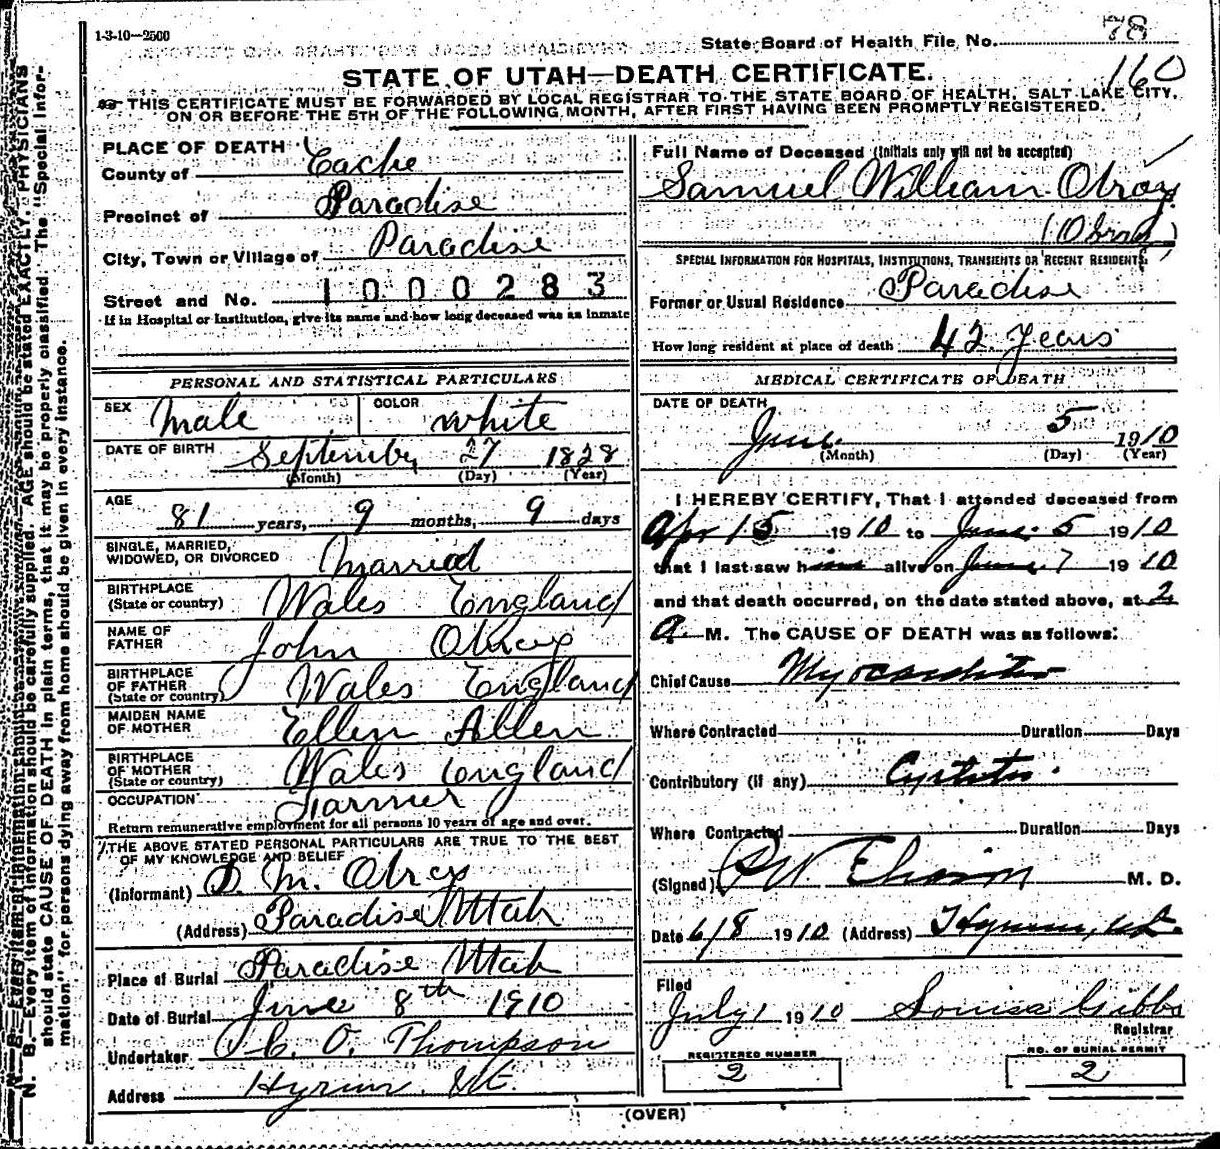 1-3-10—2500
State Board of Health File No. 78
160
STATE OF UTAH—DEATH CERTIFICATE.
THIS CERTIFICATE MUST BE FORWARDED BY LOCAL REGISTRAR TO THE STATE BOARD OF HEALTH, SALT LAKE CITY,
ON OR BEFORE THE 5TH OF THE FOLLOWING MONTH, AFTER FIRST HAVING BEEN PROMPTLY REGISTERED.
PLACE OF DEATH
County of Cache
Precinct of Paradise
City, Town or Village of Paradise
Street and No. 1000283
If in Hospital or Institution, give its name and how long deceased was as inmate
PERSONAL AND STATISTICAL PARTICULARS
SEX Male COLOR white
DATE OF BIRTH September 27 1828
(Month) (Day) (Year)
AGE 81 years, 9 months, 9 days
SINGLE, MARRIED,
WIDOWED, OR DIVORCED Married
BIRTHPLACE
(State or country) Wales England
NAME OF
FATHER John Obray
BIRTHPLACE
OF FATHER
(State or country) Wales England
MAIDEN NAME
OF MOTHER Ellen Allen
BIRTHPLACE
OF MOTHER
(State or country) Wales England
OCCUPATION Farmer
Return remunerative employment for all persons 10 years of age and over.
THE ABOVE STATED PERSONAL PARTICULARS ARE TRUE TO THE BEST
OF MY KNOWLEDGE AND BELIEF
(Informant) M. Obray
(Address) Paradise Utah
Place of Burial Paradise Utah
Date of Burial June 8th 1910
Undertaker O. Thompson
Address Hyrum Ut.
Full Name of Deceased (Initials only will not be accepted)
Samuel William Obray
(Obray)
SPECIAL INFORMATION FOR HOSPITALS, INSTITUTIONS, TRANSIENTS OR RECENT RESIDENTS
Former or Usual Residence Paradise
How long resident at place of death 42 Years
MEDICAL CERTIFICATE OF DEATH
DATE OF DEATH
June 5 1910
(Month) (Day) (Year)
I HEREBY CERTIFY, That I attended deceased from
Apr 15 1910 to June 5 1910
that I last saw him alive on June 7 1910
and that death occurred, on the date stated above, at 2
A. M. The CAUSE OF DEATH was as follows:
Chief Cause Myocarditis
Where Contracted Duration Days
Contributory (if any) Cystitis.
Where Contracted Duration Days
(Signed) M. D.
Date 6/8 1910 (Address) Hyrum, Ut.
Filed
July 1 1910 Louisa Gibbs
Registrar
REGISTERED NUMBER
2
NO. OF BURIAL PERMIT
2
(OVER)
N. B.—Every item of information should be carefully supplied. AGE should be stated EXACTLY. PHYSICIANS
should state CAUSE OF DEATH in plain terms, that it may be properly classified. The "Special Infor-
mation" for persons dying away from home should be given in every instance.